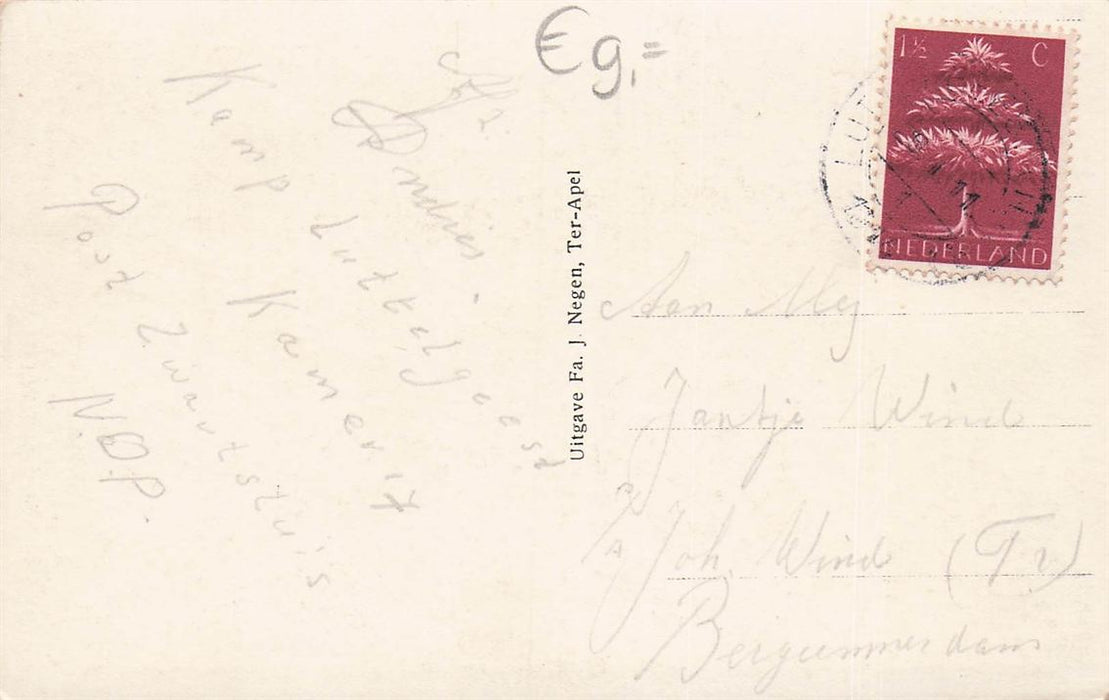 € 9,=
Afz.
Andries Lutkelgeest
Kamp Kamerik
Post Zwartsluis
N.O.P.
Uitgave Fa. J. Negen, Ter-Apel
1½ C
NEDERLAND
LUT
Aan Mej
Jantje Wind
p/a Joh. Wind (Tz)
Bergummerdam